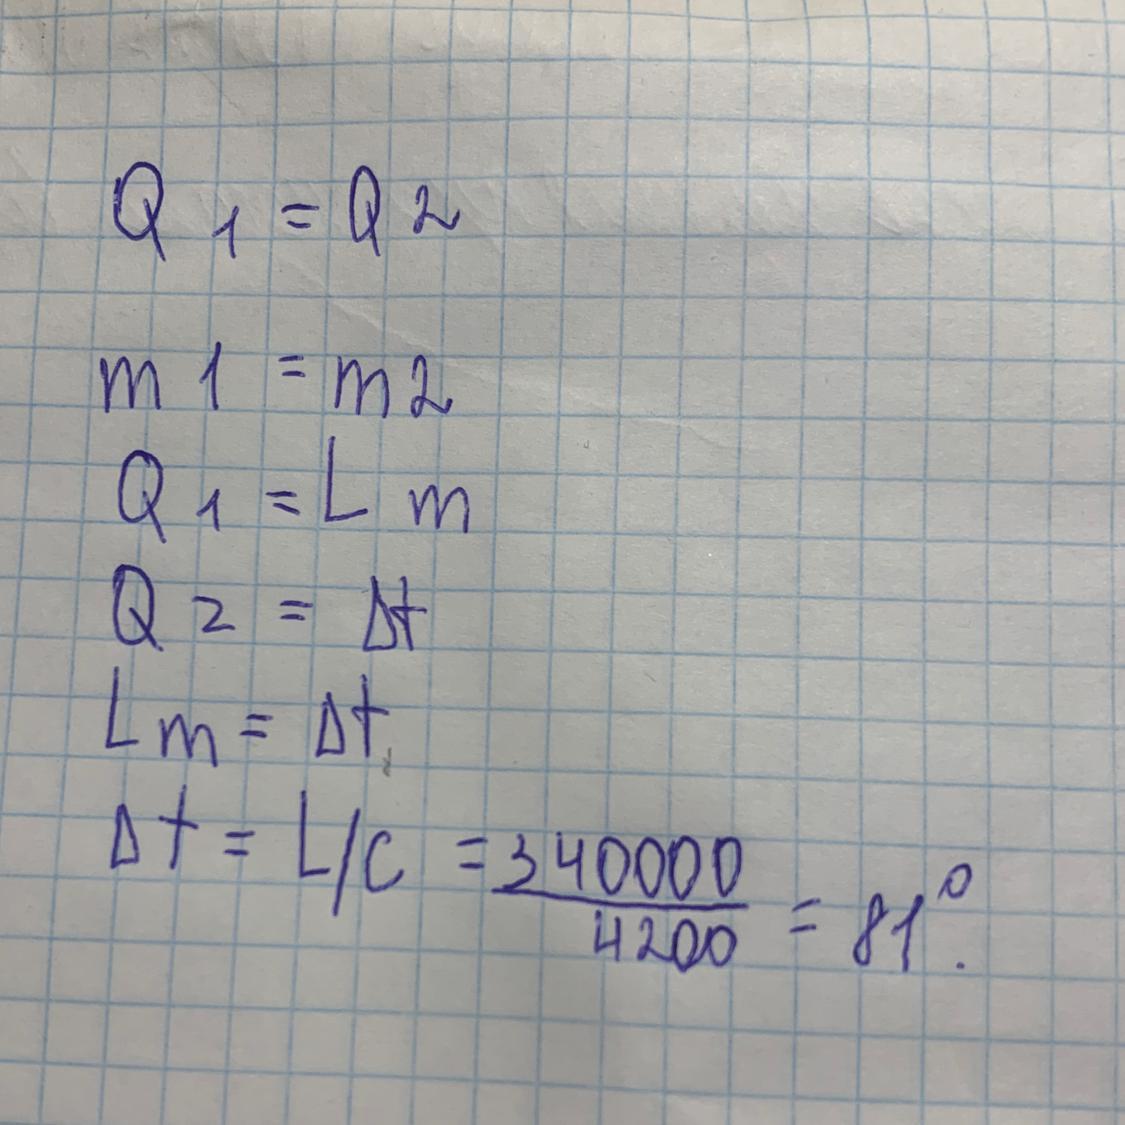 Q 1 = Q 2
m 1 = m 2
Q 1 = L m
Q 2 = Δt
L m = Δt
Δt = L/c = 340000/4200 = 81°.